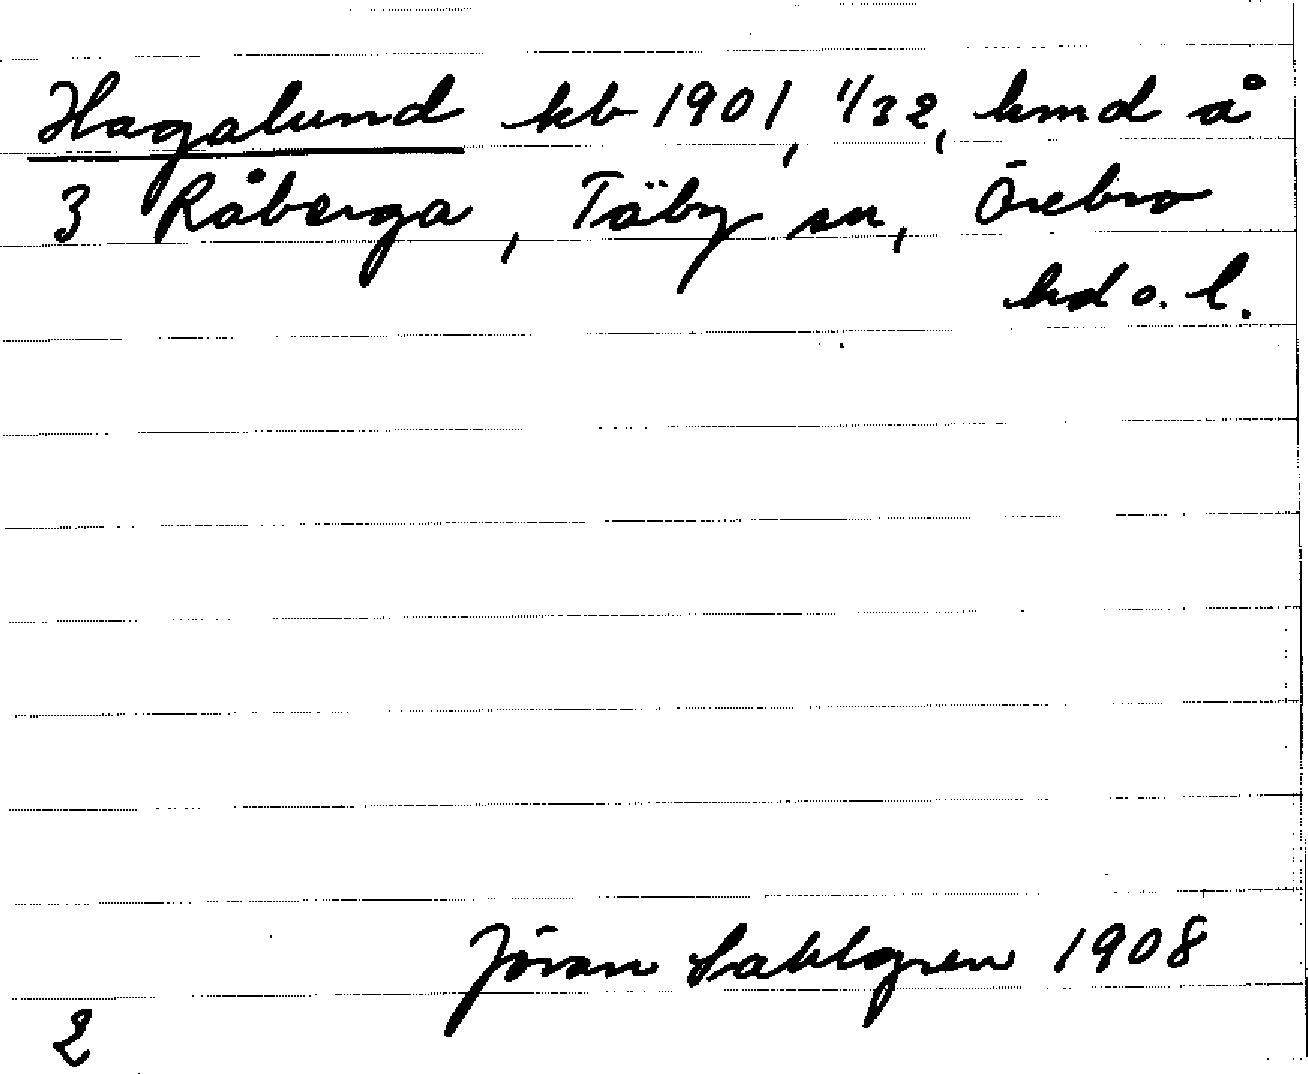 Hagalund kb 1901, 1/32, hmd å
3 Råberga, Täby sn, Örebro
hd o. l.
Jöran Sahlgren 1908
2